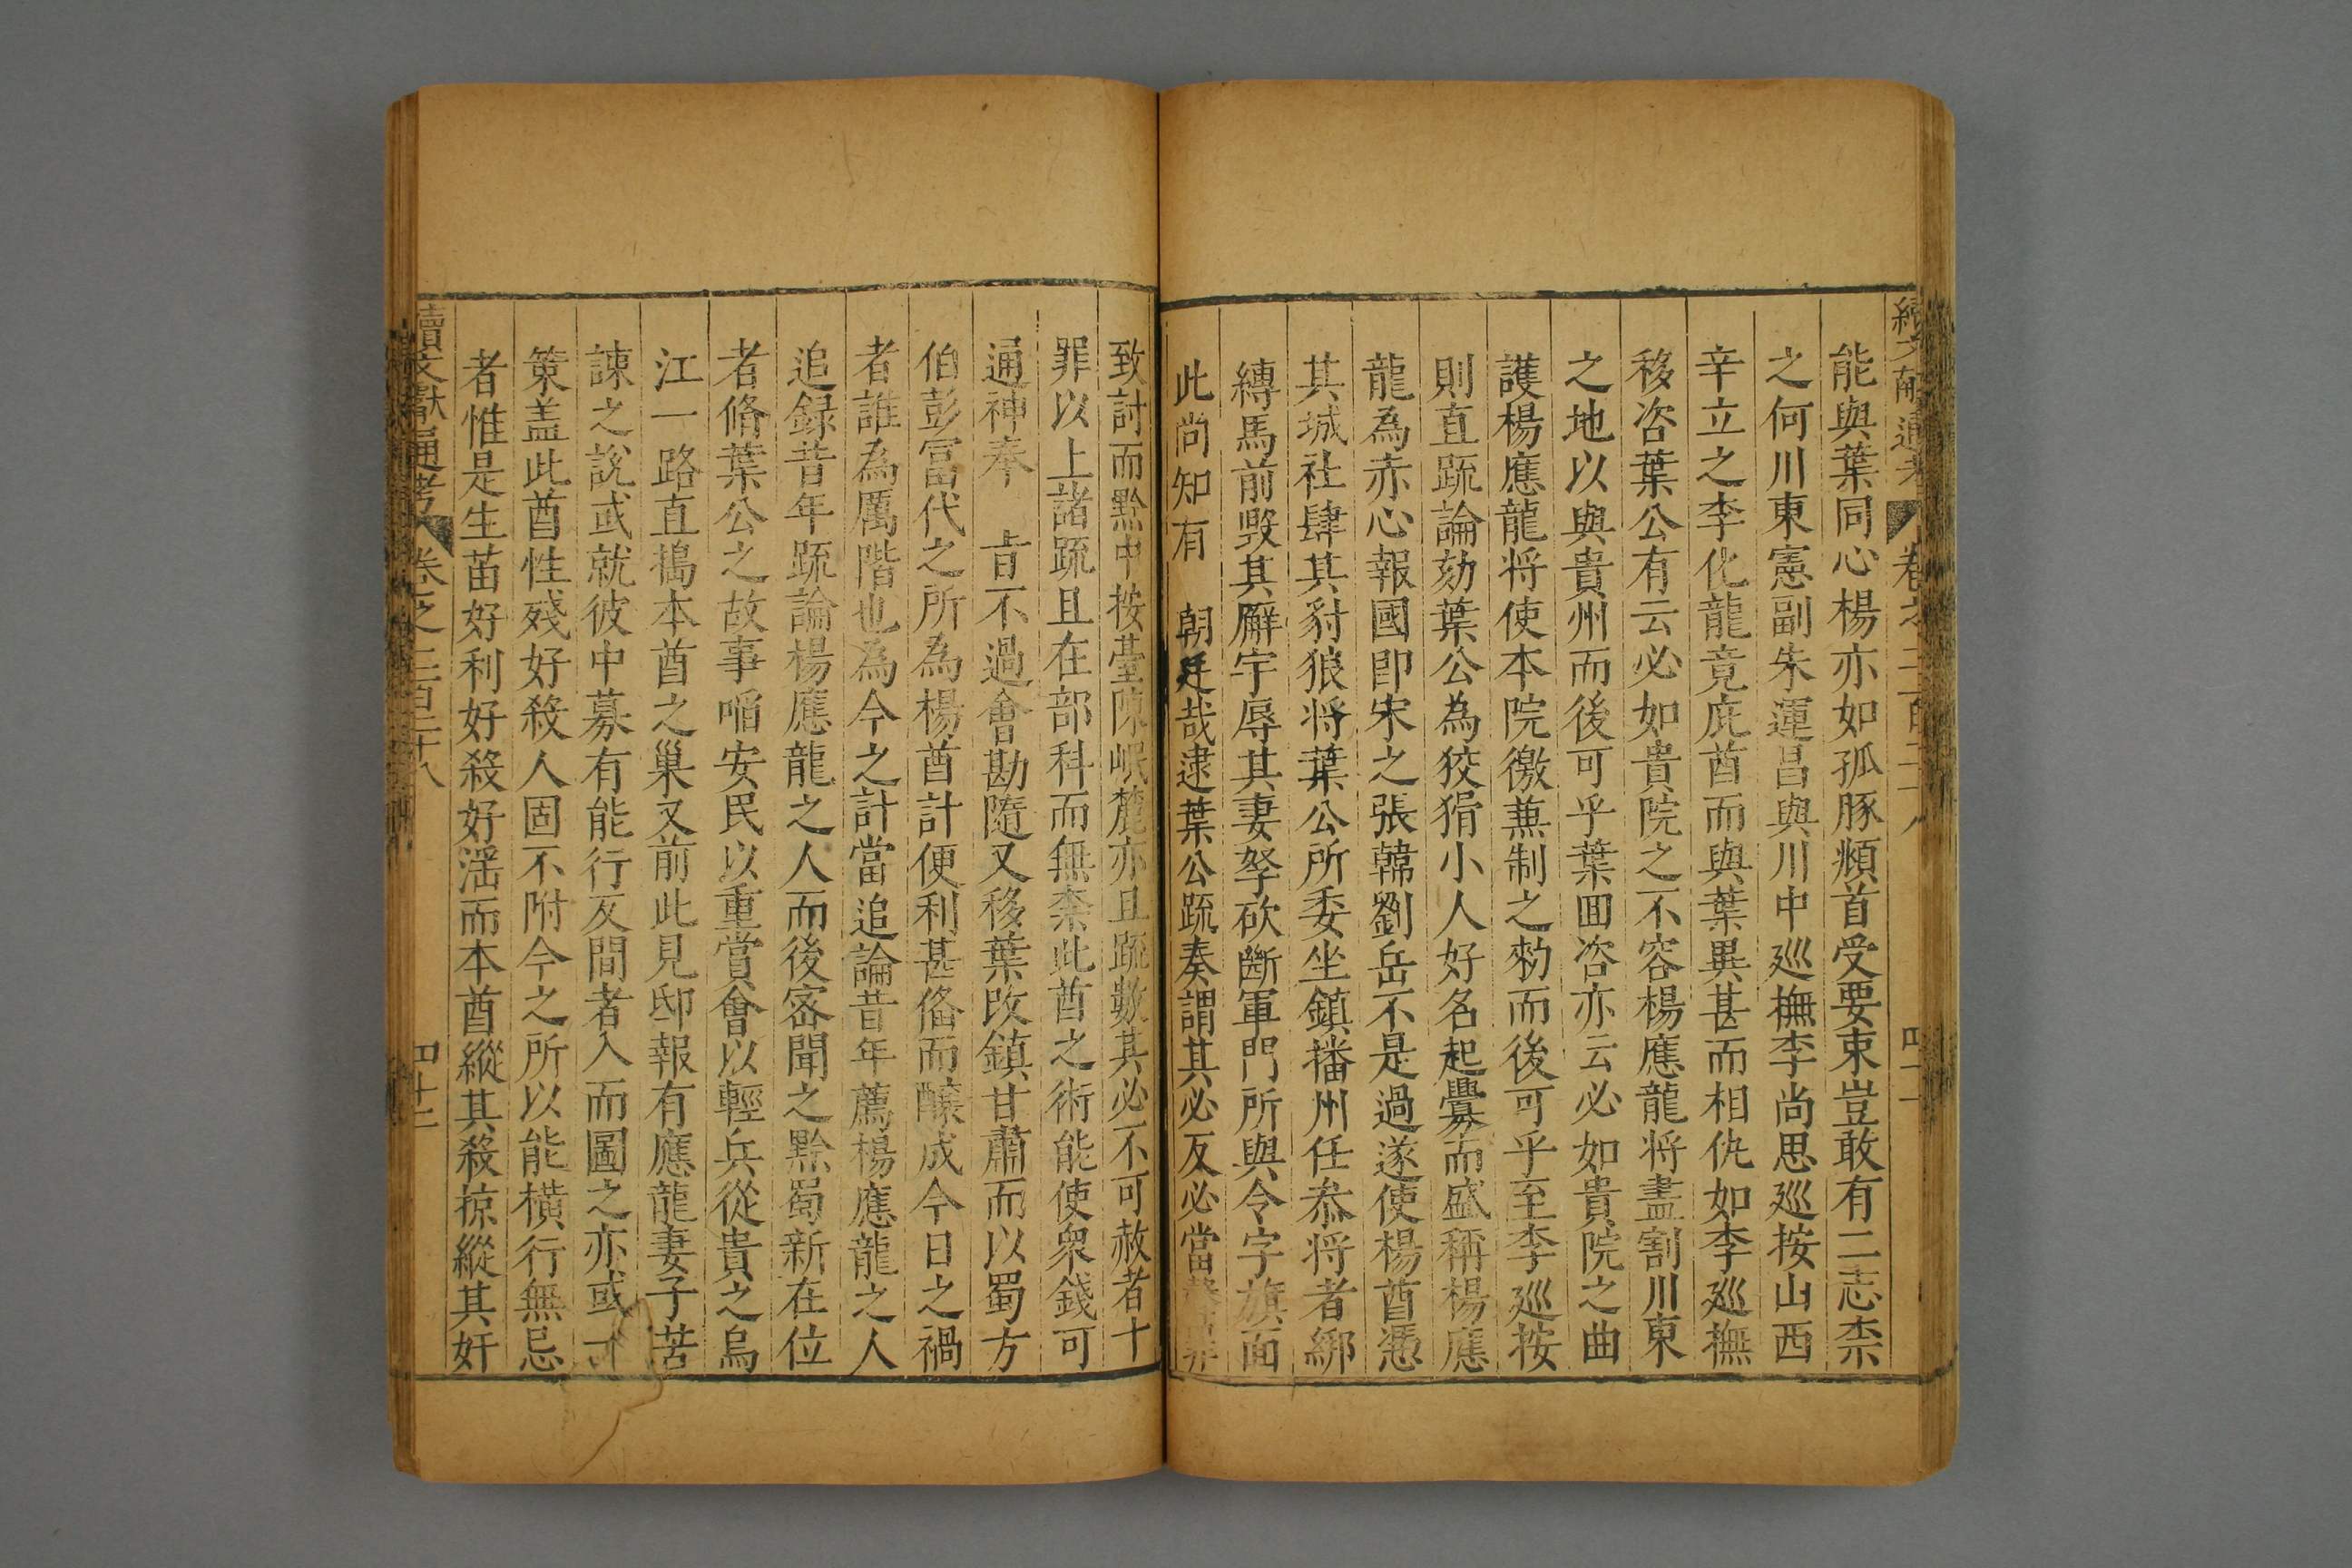 能與葉同心楊亦如孤豚頫首受要束豈敢有二志柰
之何川東憲副朱運昌與川中廵撫李尚思廵按山西
辛立之李化龍竟庇酋而與葉異甚而相仇如李廵撫
移咨葉公有云必如貴院之不容楊應龍将盡割川東
之地以與貴州而後可乎葉囬咨亦云必如貴院之曲
護楊應龍将使本院徼兼制之勑而後可乎至李廵按
則直䟽論劾葉公為狡猾小人好名起釁而盛稱楊應
龍為赤心報國即宋之張韓劉岳不是過遂使楊酋憑
其城社肆其豺狼将葉公所委坐鎮播州任叅将者綁
縛馬前毀其廨宇辱其妻孥砍斷軍門所與令字旗面
此尚知有　朝廷哉逮葉公䟽奏謂其必反必當
致討而黔中按臺陳岷麓亦且䟽數其必不可赦者十
罪以上諸䟽且在部科而無柰此酋之術能使衆錢可
通神奉　旨不過會勘隨又移葉改鎮甘肅而以蜀方
伯彭富代之所為楊酋計便利甚俻而釀成今日之禍
者誰為厲階也為今之計當追論昔年薦楊應龍之人
追録昔年䟽論楊應龍之人而後宻聞之黔蜀新在位
者脩葉公之故事啗安民以重賞會以輕兵從貴之烏
江一路直搗本酋之巢又前此見邸報有應龍妻子苦
諫之說或就彼中募有能行反間者入而圖之亦或一
策盖此酋性殘好殺人固不附今之所以能橫行無忌
者惟是生苗好利好殺好滛而本酋縱其殺掠縱其奸
續文獻通考　卷之二百三十八　四十二